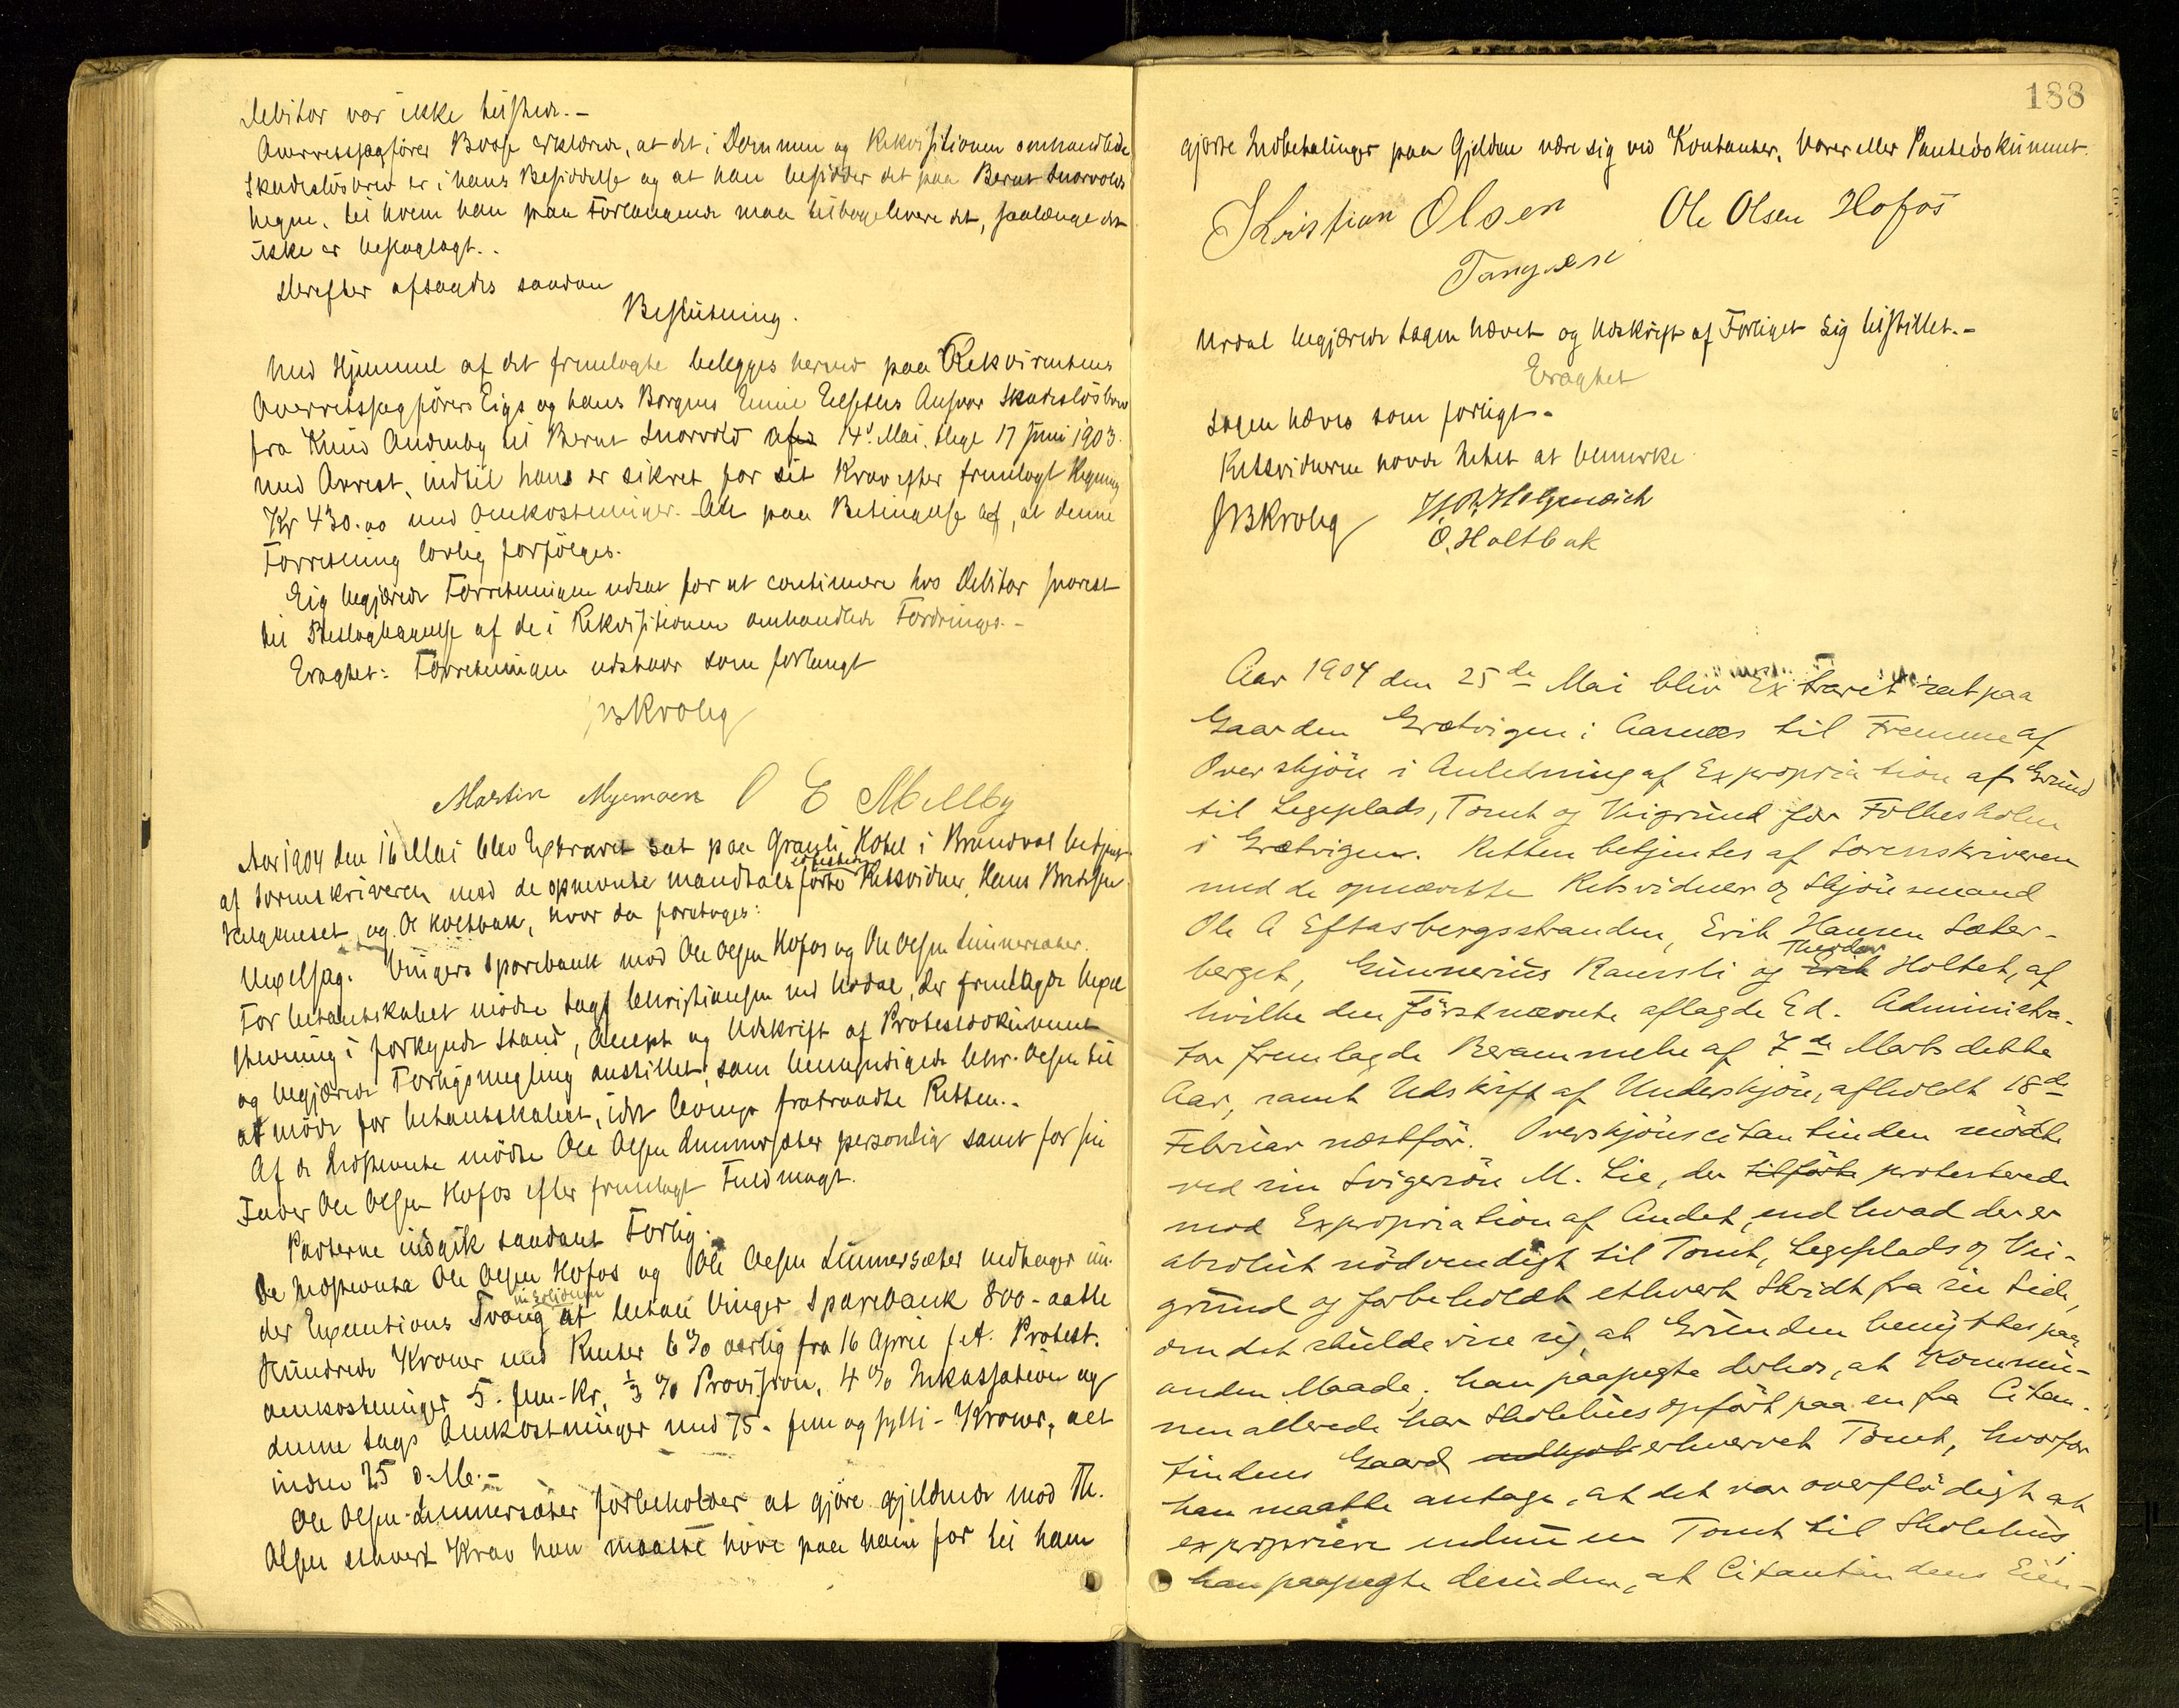 Debitor var ikke tilstede.-
Overretssagfører Boose erklærede, at det i Dommen og Rekvisitionen omhandlede
Skadesløsbrev er i hans Besiddelse og at han besidder det paa Bernt Snorvolds
Vegne, til hvem han paa Forlangende maa tilbagelevere det, saalænge det
ikke er beslaglagt..
Derefter afsagdes saadan
Beslutning.
Med Hjemmel af det fremlagte belegges herved paa Rekvirentens
Overretssagfører Eigs og hans Borgens Ansvar Skadesløsbrev
fra Knud Andenby til Bernt Snorvold 14d Mai, thgl 17 Juni 1903
med Arrest, indtil hans er sikret for sit Krav efter fremlagt Regning
Kr 430.00 med Omkostninger. Alt paa Betingelse af, at denne
Forretning lovlig forfølges.
Eig begjærede Forretningen udsat for at continuere hos Debitor Snorest
til Beslaglæggelse af de i Rekvisitionen omhandlede Fordringer.-
Eragtet: Forretningen udstaar som forlangt
JNBKrohg
Martin Myrmoen O E Melby
Aar 1904 den 16 Mai blev Extraret sat paa Granli Hotel i Brandval betjent
af Sorenskriveren med de opnevnte mandtalsførte Retsvidner, Hans
Helgeneset og O Holtbak, hvor da foretoges:
Vexelsag. Vingers Sparebank mod Ole Olsen Hofos og Ole Olsen Linnersæter.
For Citantskabet mødte Sagf Christiansen ved Urdal, der fremlagde Vexel
stevning i forkyndt Stand, Accept og Udskrift af Protestdokument
og begjærede Forligsmegling anstillet, som bemyndigede Chr. Olsen til
at møde for Citantskabet, idet fratraadte Retten.-
Af de Indstevnte mødte Ole Olsen Linnersæter personlig samt for sin
Fader Ole Olsen Hofos efter fremlagt Fuldmagt.
Parterne indgik saadant Forlig:
De Indstevnte Ole Olsen Hofos og Ole Olsen Linnersæter vedtager un-
der Executions Tvang in solidum at betale Vinger Sparebank 800 - aatte
Hundrede Kroner med Renter 6% aarlig fra 16 April f.A. Protest.
omkostninger 5. fem - Kr, 1/3 % Provision, 4 % Inkassation og
denne Sags Omkostninger med 75. fem og sytti - Kroner, alt
inden 25 d.M.-
Ole Olsen Linnersæter forbeholder at gjøre gjeldende mod Th.
Olsen ethvert Krav han maatte have paa ham for til ham
188
gjorte Indbetalinger paa Gjelden være sig ved Kontanter, Varer eller Pantedokument.
Kristian Olsen Ole Olsen Hofos
Tangnese
Urdal begjærede Sagen hævet og Udskrift af Forliget sig tilstillet.-
Eragtet
Sagen hæves som forligt.-
Retsvidnerne havde Intet at bemerke
JNBKrohg H.B.Helgeneseth
O. Holtbak
Aar 1904 den 25de Mai blev Extraret sat paa
Gaarden Grætvigen i Aasnes til Fremme af
Overskjøn i Anledning af Expropriation af Grund
til Legeplads, Tomt og Veigrund for Folkeskolen
i Grætvigen. Retten betjentes af Sorenskriveren
med de opnævnte Retsvidner og Skjønsmænd
Ole A Eftasbergsstranden, Erik Hansen Sæter-
berget, Gunnerius Ramsli og Theodor Holtet, af
hvilke den Førstnævnte aflagde Ed. Administra-
tor fremlagde Berammelse af 7de Marts dette
Aar, samt Udskrift af Underskjøn, afholdt 18de
Februar næstfør. Overskjønscitantinden mødte
ved sin Svigersøn M. Lie, der tilførte protesterede
mod Expropriation af Andet, end hvad der er
absolut nødvendigt til Tomt, Legeplads og Vei-
grund og forbeholdt ethvert Skridt fra sin Side,
om det skulde vise sig, at Grunden benyttes paa
anden Maade; han paapegte derhos, at Kommu-
nen allerede har Skolehus opført paa en fra Citan-
tindens Gaard erhvervet Tomt, hvorfor
han maatte antage, at det var overflødigt at
expropriere endnu en Tomt til Skolehus;
han paapegte desuden, at Citantindens Eien-